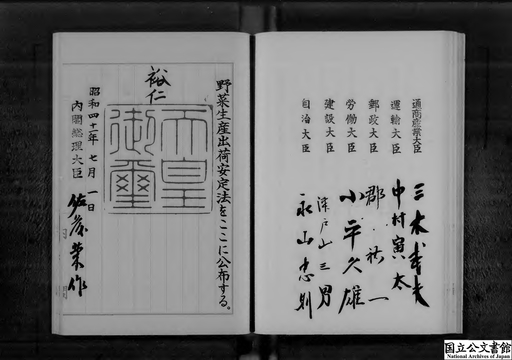 通商産業大臣 三木武夫
運輸大臣 中村寅太
郵政大臣 郡祐一
労働大臣 小平久雄
建設大臣 瀬戸山三男
自治大臣 永山忠則
野菜生産出荷安定法をここに公布する。
裕仁
天皇
御璽
昭和四十一年七月一日
内閣総理大臣 佐藤榮作
国立公文書館
National Archives of Japan